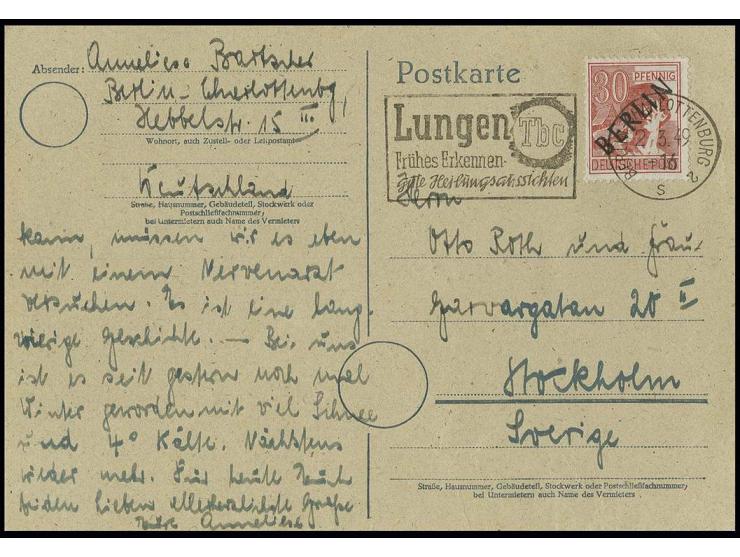 Absender: Anneliese Bartscher
Berlin-Charlottenbg,
Hebbelstr. 15 III
Wohnort, auch Zustell- oder Leitpostamt
Deutschland
Straße, Hausnummer, Gebäudeteil, Stockwerk oder
Postschließfachnummer;
bei Untermietern auch Name des Vermieters
kann, müssen wir es eben
mit einem Nervenarzt
versuchen. Es ist eine lang-
wierige Geschichte. — Bei uns
ist es seit gestern noch mal
Winter geworden mit viel Schnee
und 4° Kälte. Nächstens
wieder mehr. Für heute Euch
beiden lieben allerherzlichste Grüße
Eure Anneliese
Postkarte
Lungen Tbc
Frühes Erkennen-
gute Heilungsaussichten
30 PFENNIG
BERLIN
DEUTSCHE POST
CHARLOTTENBURG 2
3.49
-16
s
Herrn
Otto Roth und Frau
Garvargatan 20 II
Stockholm
Sverige
Straße, Hausnummer, Gebäudeteil, Stockwerk oder Postschließfachnummer;
bei Untermietern auch Name des Vermieters